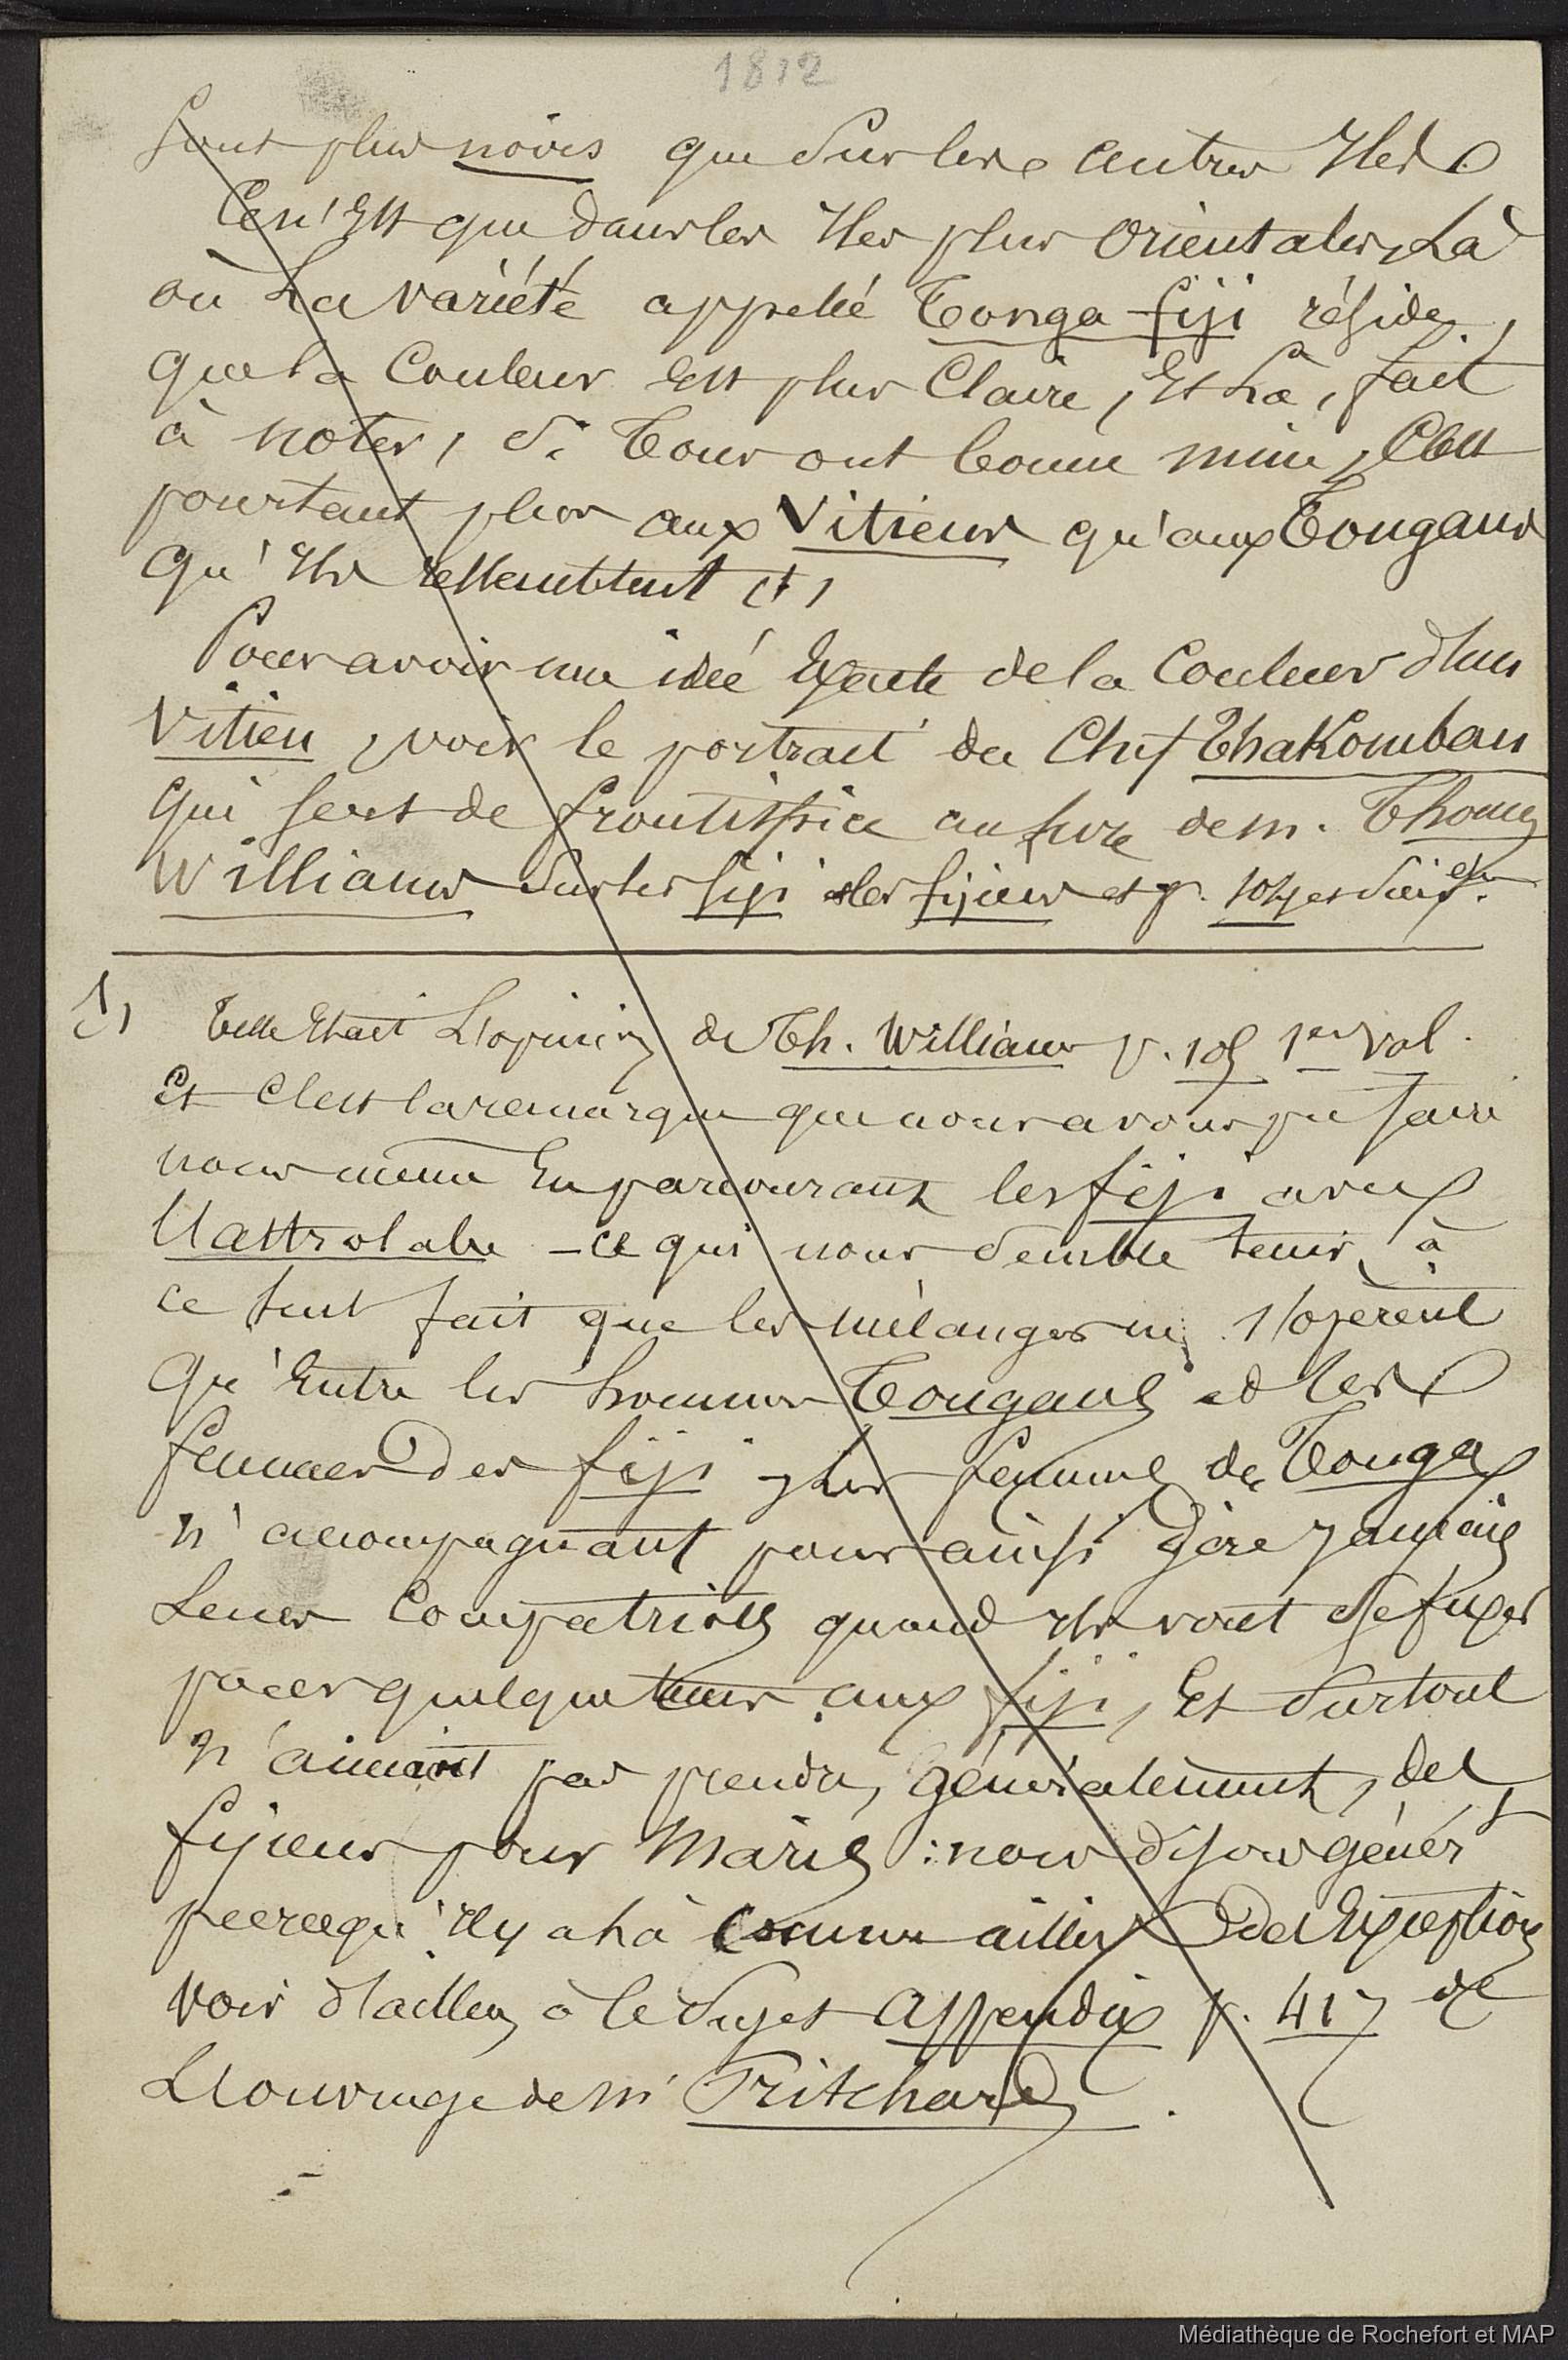 1812
sont plus noirs que sur les autres Iles
Ce n'Est que dans les Iles plus Orientales, Là
où La variété appellé Tonga-fiji réside,
que la Couleur Est plus Claire, Et Là, fait
à noter, si Tous ont bonne mine, C'est
pourtant plus aux Vitiens qu'aux Tongans
qu'Ils ressemblent (1)
Pour avoir une idée Exacte de la Couleur d'un
Vitien, voir le portrait du Chef Thakombau
qui sert de frontispice au livre de m. Thomas
Williams sur les fiji et les fijiens et p. 104 et suiv.
1) Telle Etait L'opinion de Th. Williams p. 105 1er vol.
Et C'est la remarque que nous avons pu faire
nous même En parcourant les fiji avec
L'astrolabe - ce qui nous semble tenir à
ce seul fait que les mélanges ne s'opèrent
qu'Entre les hommes Tongans et les
femmes des fiji, les femmes de Tonga
n'accompagnant pour ainsi dire jamais
Leurs Compatriotes quand ils vont se fixer
pour quelque tems aux fiji, Et surtout
n'aimant pas prendre, généralement, des
fijiens pour Maris : nous disons génért
parcequ'Il y a là comme ailleurs des Exceptions
voir d'ailleurs à ce sujet appendix p. 417 de
L'ouvrage de M. Pritchard.
Médiathèque de Rochefort et MAP